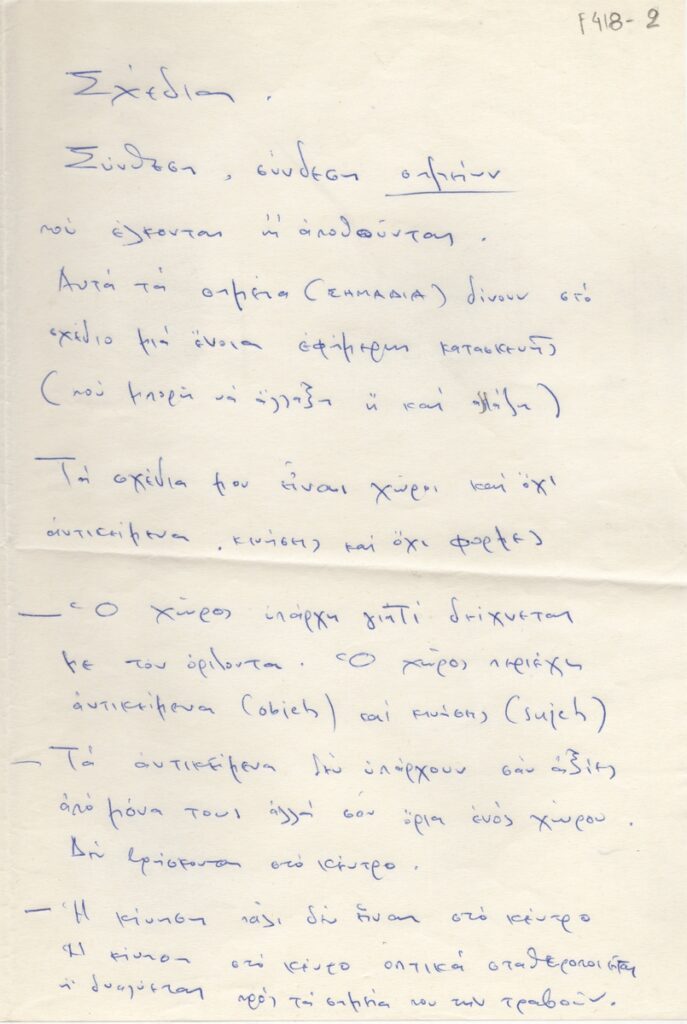 F418-2
Σχέδια.
Σύνθεση, σύνδεση σημείων
πού ἕλκονται ἤ ἀποθοῦνται.
Αυτά τά σημεία (ΣΗΜΑΔΙΑ) δίνουν στό
σχέδιο μιά ἔνοια εφήμερης κατασκευῆς
(πού μπορῆ νά ἀλλάξη ἤ καί)
Τά σχέδια μου εἶναι χῶροι καί ὄχι
ἀντικείμενα, κινήσης καί ὄχι φορμες
— Ὁ χῶρος ὑπάρχη γιατί δείχνεται
με τον ὁρίζοντα. Ὁ χῶρος περιέχη
ἀντικείμενα (objets) καί κινήσης (sujets)
— Τά ἀντικείμενα δέν ὑπάρχουν σάν ἀξίες
ἀπό μόνα τους ἀλλά σάν ὅρια ἑνός χώρου.
Δέν βρίσκονται στό κέντρο.
— Ἡ κίνηση πάλι δέν εἶναι στό κέντρο
Ἡ κίνηση στό κέντρο ὀπτικά σταθεροποιείται
ἤ διαλύεται πρός τά σημεία που την τραβοῦν.